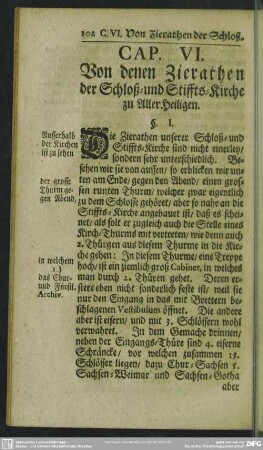 102 C. VI. Von Zierathen der Schloß.
CAP. VI.
Von denen Zierathen
der Schloß- und Stiffts-Kirche
zu Aller Heiligen.
§. I.
Ausserhalb
der Kirchen
ist zu sehen
der grosse
Thurm ge-
gen Abend,
in welchem
1.)
das Chur-
und Fürstl.
Archiv.
Die Zierathen unserer Schloß- und
Stiffts-Kirche sind nicht einerley/
sondern sehr unterschiedlich. Be-
sehen wir sie von aussen/ so erblicken wir un-
ten am Ende/ gegen den Abend/ einen gros-
sen runten Thurm/ welcher zwar eigentlich
zu dem Schlosse gehöret/ aber so nahe an die
Stiffts-Kirche angebauet ist/ daß es schei-
net/ als solt er zugleich auch die Stelle eines
Kirch-Thurms mit vertreten/ wie denn auch
2. Thüren aus diesem Thurme in die Kir-
che gehen: In diesem Thurme/ eine Treppe
hoch/ ist ein ziemlich groß Cabinet, in welches
man durch 2. Thüren gehet. Deren er-
stere eben nicht sonderlich feste ist/ weil sie
nur den Eingang in das mit Brettern be-
schlagenen Vestibulum öffnet. Die andere
aber ist eisern/ und mit 3. Schlössern wohl
verwahret. In dem Gemache drinnen/
neben der Eingangs-Thüre sind 4. eiserne
Schräncke/ vor welchen zusammen 15.
Schlösser liegen/ dazu Chur-Sachsen 5.
Sachsen-Weimar und Sachsen-Gotha
aber